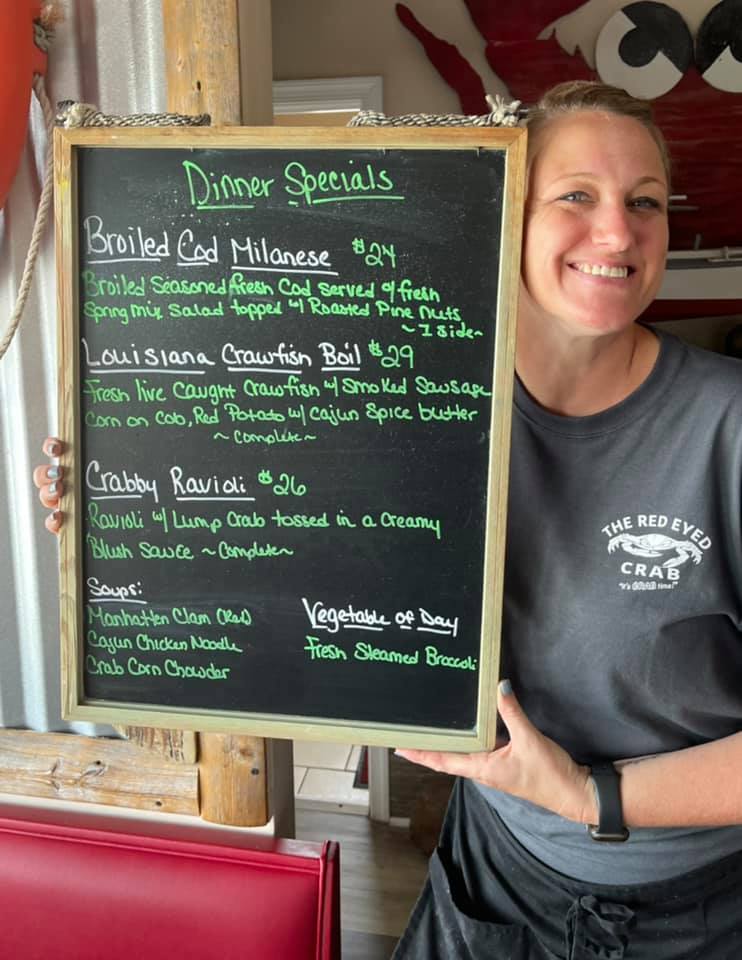 Dinner Specials
Broiled Cod Milanese $24
Broiled Seasoned fresh Cod served w/ fresh
Spring mix salad topped w/ Roasted Pine nuts
~ 1 side ~
Louisiana Crawfish Boil $29
Fresh live caught Crawfish w/ Smoked Sausage
Corn on Cob, Red Potato w/ Cajun Spice butter
~ Complete ~
Crabby Ravioli $26
Ravioli w/ Lump Crab tossed in a Creamy
Blush Sauce ~ Complete ~
Soups:
Manhatten Clam (Red)
Cajun Chicken Noodle
Crab Corn Chowder
Vegetable of Day
Fresh Steamed Broccoli
THE RED EYED
CRAB
"It's CRAB time!"